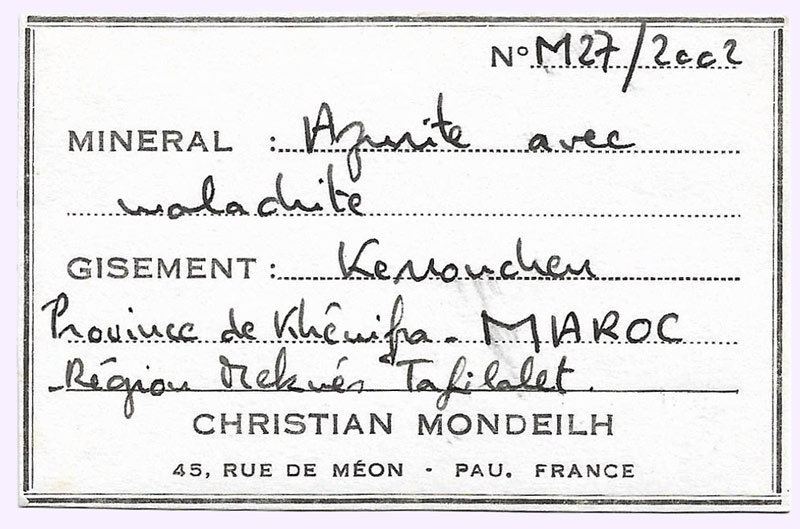 N° M27/2002
MINERAL : Azurite avec
malachite
GISEMENT : Kerrouchen
Province de Khénifra - MAROC
- Région Meknés Tafilalet.
CHRISTIAN MONDEILH
45, RUE DE MÉON - PAU. FRANCE